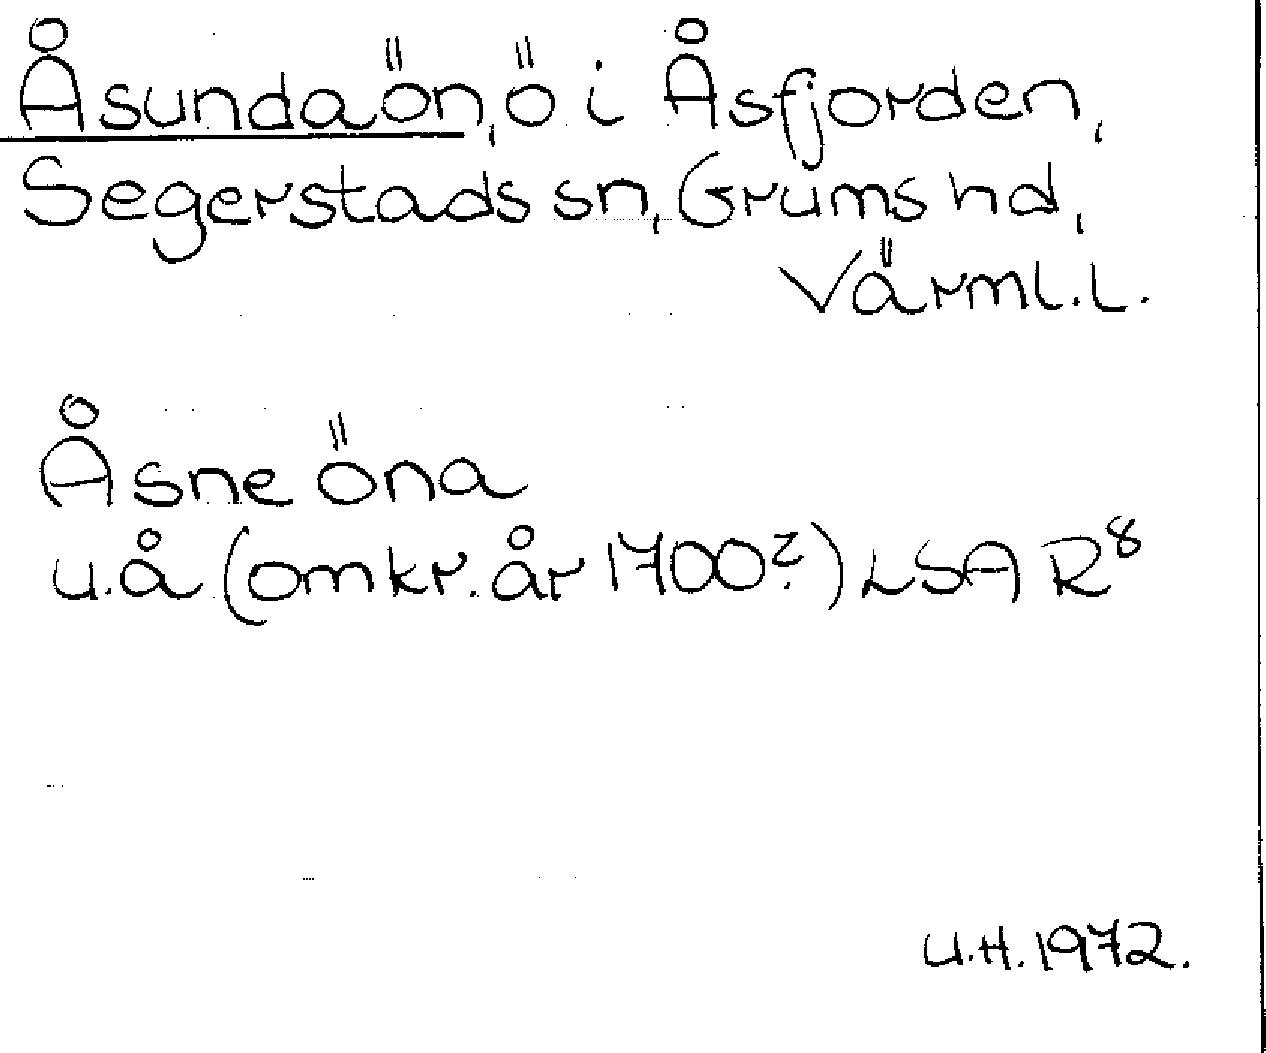 Åsundaön, ö i Åsfjorden,
Segerstads sn, Grums hd,
Värml.l.
Åsne öna
u.å (omkr. år 1700?) LSA R⁸
U.H. 1972.